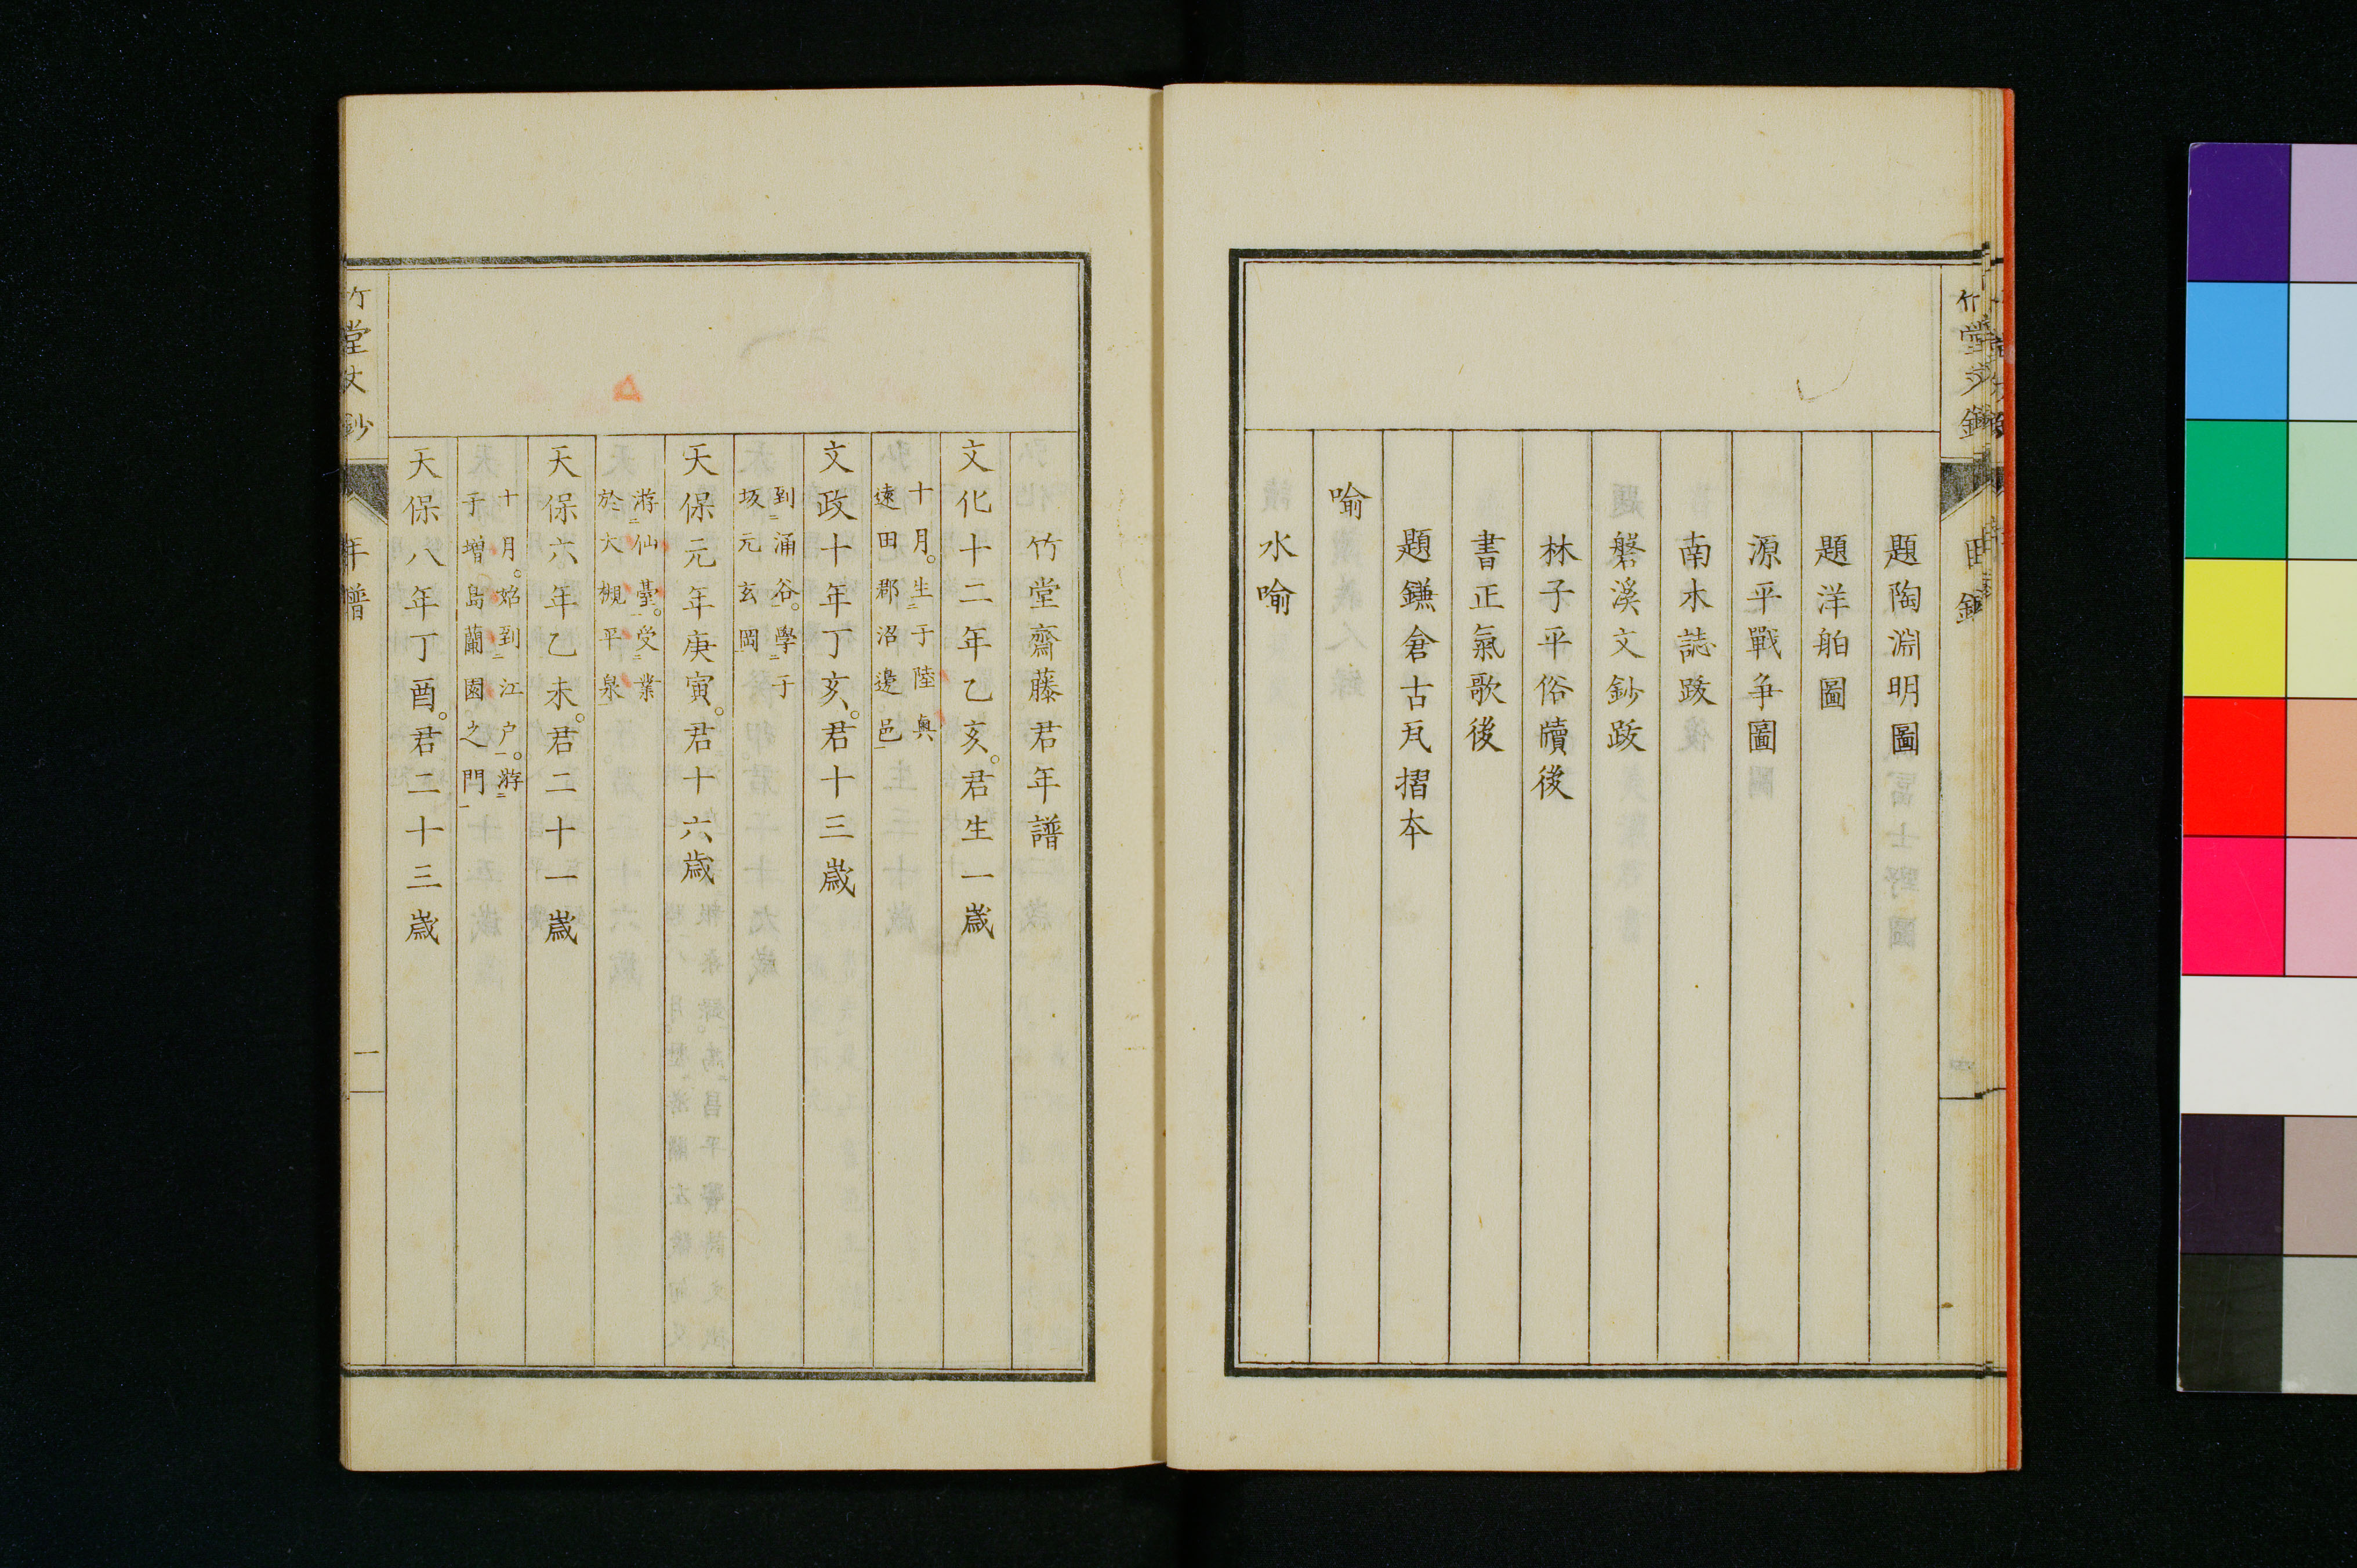 題陶淵明圖
題洋舶圖
源平戰爭圖
南木誌跋
磐溪文鈔跋
林子平俗牘後
書正氣歌後
題鎌倉古瓦搨本
喻
水喻
竹堂齋藤君年譜
文化十二年乙亥。君生一歲
十月。生于陸奧
遠田郡沼邊邑
文政十年丁亥。君十三歲
到涌谷。學于
坂元玄岡
天保元年庚寅。君十六歲
游仙臺。受業
於大槻平泉
天保六年乙未。君二十一歲
十月。始到江戶。游
于增島蘭園之門
天保八年丁酉。君二十三歲
竹堂文鈔
年譜
一